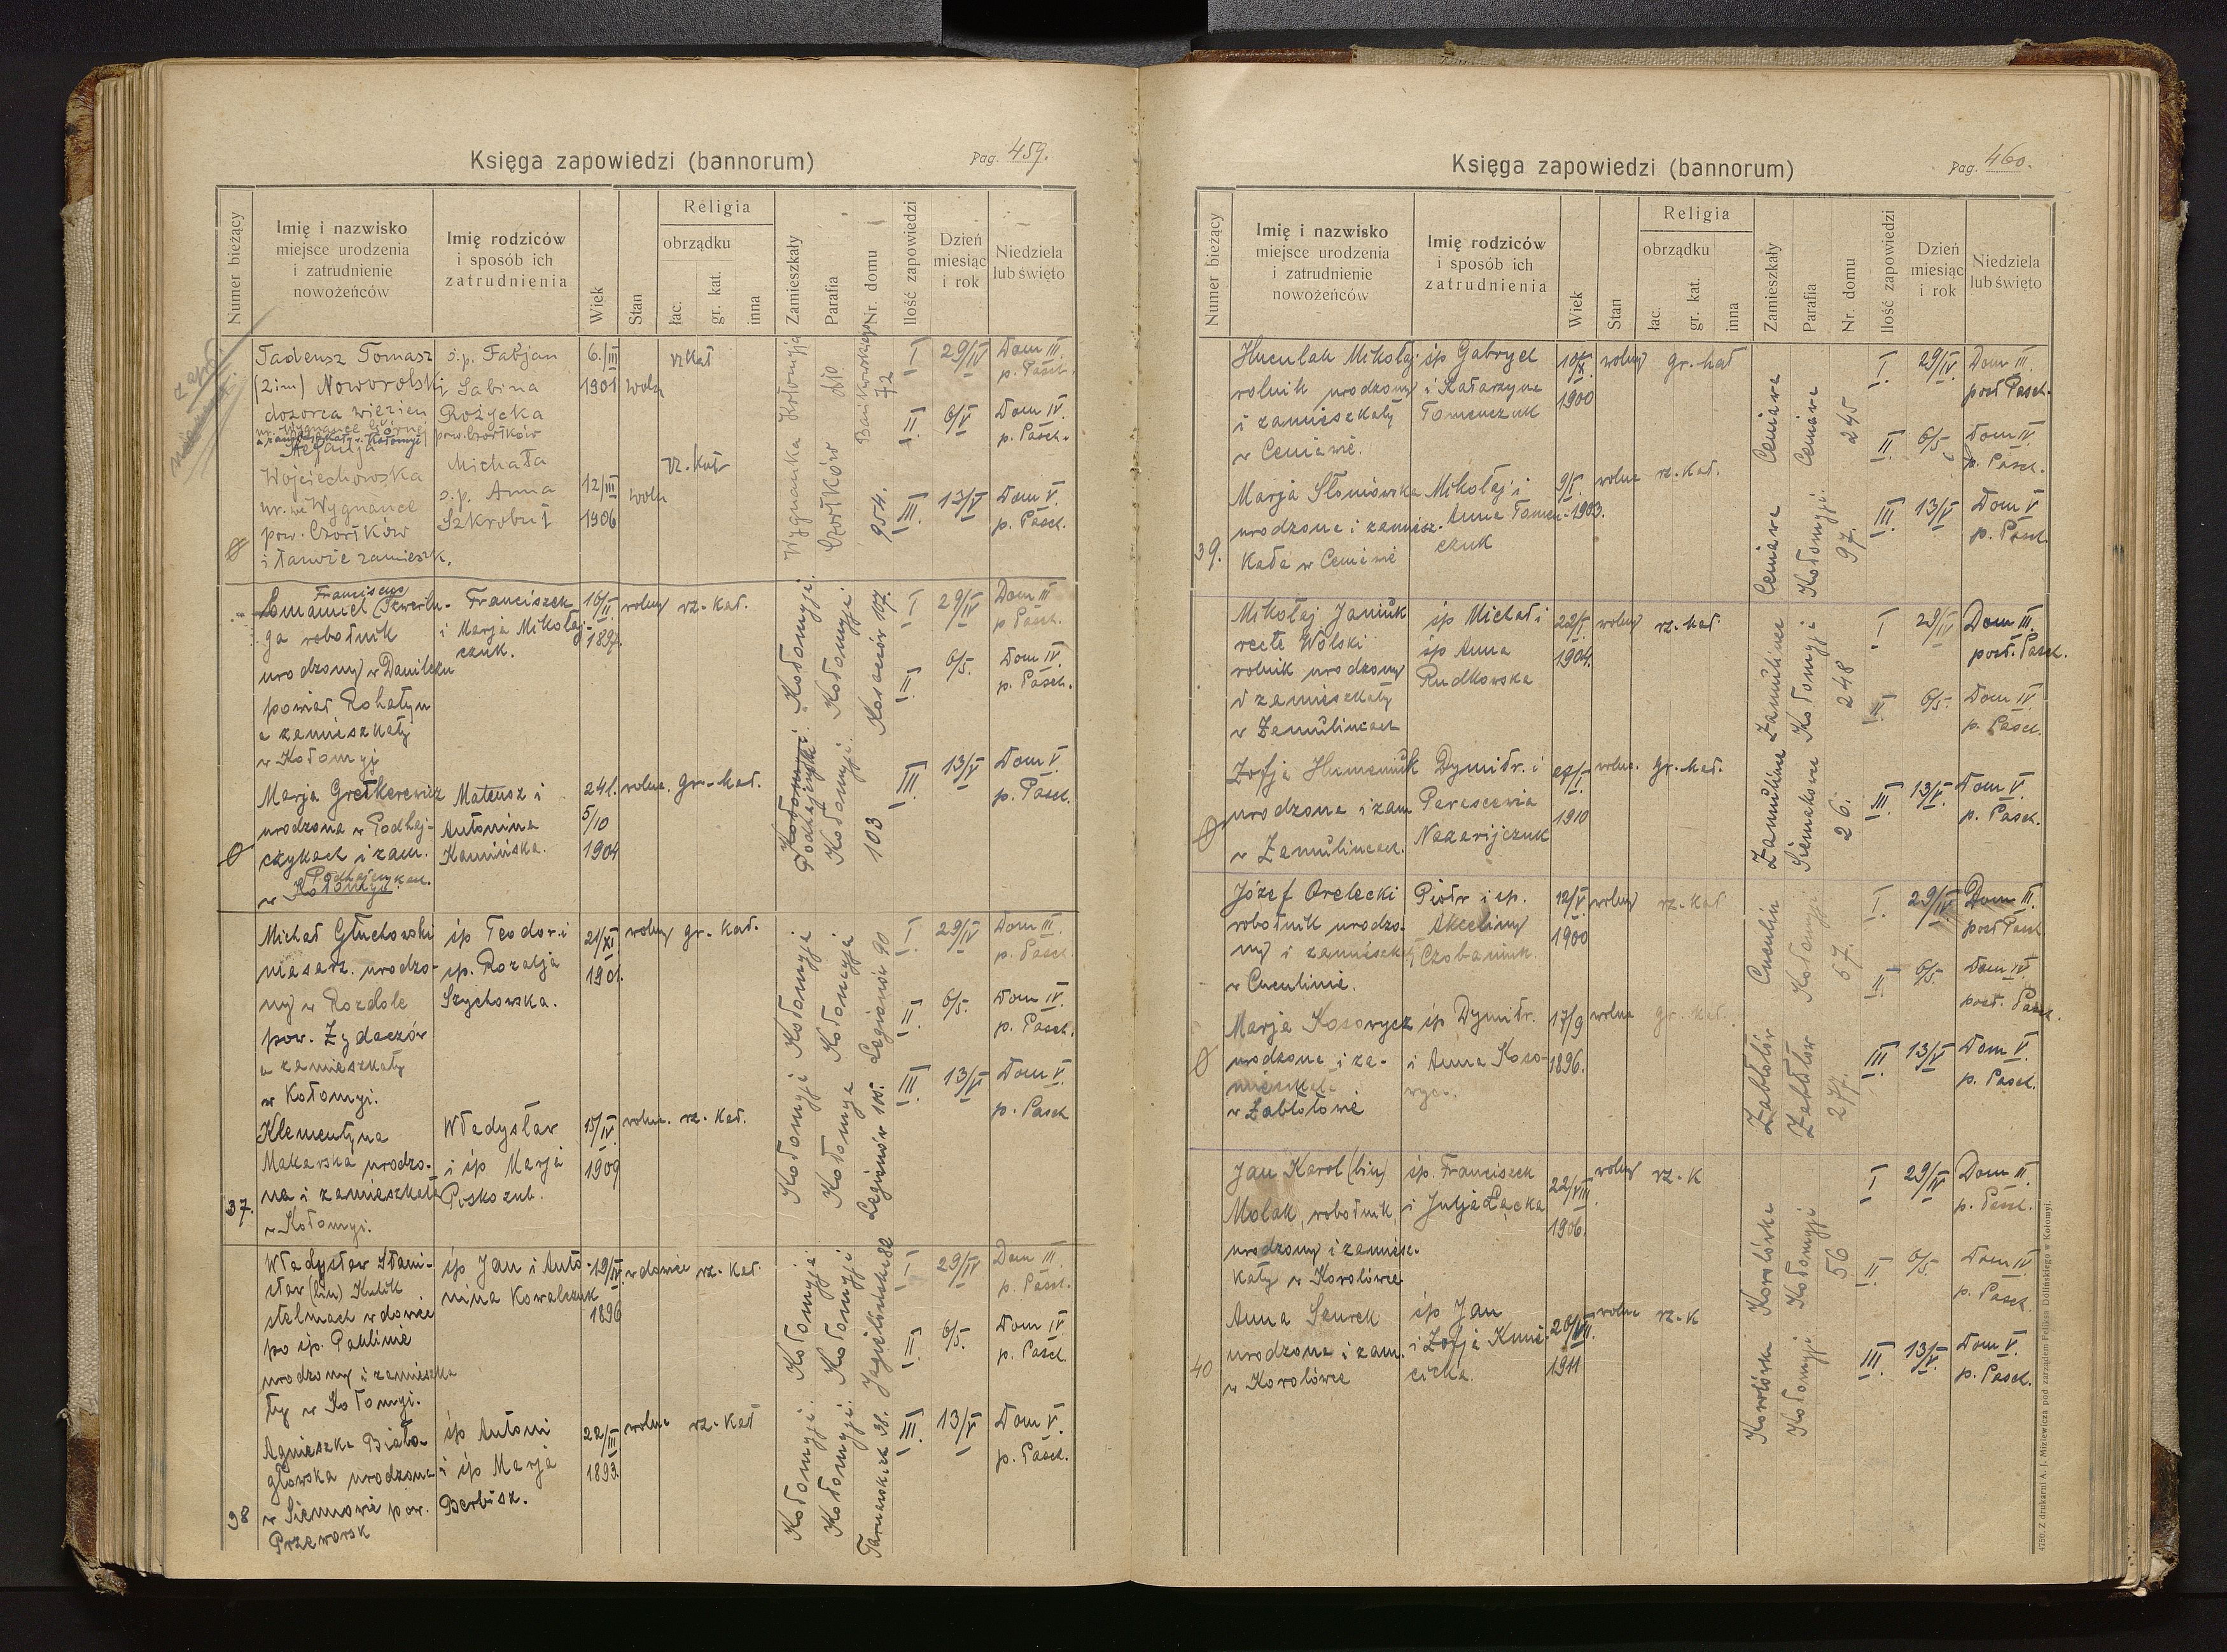 Księga zapowiedzi (bannorum)
Pag. 459.
Numer bieżący
Imię i nazwisko
miejsce urodzenia
i zatrudnienie
nowożeńców
Imię rodziców
i sposób ich
zatrudnienia
Wiek
Stan
Religia
obrządku
łac.
gr. kat.
inna
Zamieszkały
Parafia
Nr. domu
Ilość zapowiedzi
Dzień
miesiąc
i rok
Niedziela
lub święto
Tadeusz Tomasz ś.p. Fabjan 6./III rz kat I 29/IV Dom III.
(2 im) Noworolski i Sabina 1901 wolny p. Pasch.
dozorca więzien Rożycka 72 II 6/V Dom IV.
pow. Czortków p. Pasch.
Michała rz. kat
Wojciechowska ś.p. Anna 12/III wolna
ur. we Wygnance Szkrobut 1906 954. III. 13/V Dom V
pow. Czortków p. Pasch.
i tamże zamieszk.
Wygnanka Kołomyja
Czortków
Franciszek
Franciszek 16/II wolny rz-kat. I 29/IV Dom III
ga robotnik i Marja Mikołaj- 1897. p Pasch.
urodzony w czuk. II 6/5. Dom IV.
powiat Rohatyn p. Pasch.
a zamieszkały
w Kołomyji
Kołomyji
Kosaczów 107.
Marja Gretkerewicz Mateusz i 24 l. wolna. gr-kat. III 13/V Dom V
urodzona w Podhaj- Antonina 5/10 p. Pasch.
czykach i zam. Kamińska. 1904 103
Podhajczykach.
w Kołomyji.
Michał Głuchowski śp Teodor i 21/XI wolny gr-kat. I 29/IV Dom III.
masarz. urodzo- śp. Rozalja 1901. p. Pasch
ny w Rozdole Szychowska. II 6/5. Dom IV.
pow. Żydaczów p. Pasch.
a zamieszkały III 13/V Dom V.
w Kołomyi. p. Pasch
Kołomyja
Kołomyja
Legionów 90
Klementyna Władysław 15/IV wolna. rz-kat.
Makarska urodzo- i śp Marja 1909
na i zamieszkała Poskozub.
37. w Kołomyi.
Kołomyji
Kołomyja
Legionów 105.
Władysław Stani- śp Jan i Anto- 19/IV wdowiec rz-kat. I 29/IV Dom III
sław (bin) Kulik nina Kowalczuk 1896 p. Pasch.
stelmach wdowiec II 6/5. Dom IV
po śp. Paulinie p. Pasch.
urodzony i zamieszka
ły w Kołomyi.
Kołomyja
Kołomyji
Jagiellońska 82
Agnieszka Biało- śp Antoni 22/III wolna rz-kat III 13/V Dom V.
głowska urodzona i śp Marja 1893. p. Pasch.
w Sienowie pow. Berbisz.
38 Przeworsk
Kołomyji.
Kołomyji.
Księga zapowiedzi (bannorum)
Pag. 460.
Numer bieżący
Imię i nazwisko
miejsce urodzenia
i zatrudnienie
nowożeńców
Imię rodziców
i sposób ich
zatrudnienia
Wiek
Stan
Religia
obrządku
łac.
gr. kat.
inna
Zamieszkały
Parafia
Nr. domu
Ilość zapowiedzi
Dzień
miesiąc
i rok
Niedziela
lub święto
Huculak Mikołaj śp Gabryel 10/X. wolny gr-kat I 29/IV Dom III
rolnik urodzony i Katarzyna 1900 post Pasch.
i zamieszkały Tomenczuk 245 II 6/5 Dom IV.
w Ceniawie. p. Pasch.
Ceniawa
Ceniawa
Marja Słoniowska Mikołaj i 9/I. wolna rz-kat.
urodzona i zamiesz- Anna Tomen- 1903. III. 13/V Dom V
39. kała w Ceniawie czuk p. Pasch.
Ceniawa
Kołomyji.
97.
Mikołaj Janiuk śp Michał i 22/I. wolny rz-kat I 29/IV Dom III.
recte Wolski śp Anna 1904. post. Pasch.
rolnik urodzony Rudkowska 248
i zamieszkały II 6/5. Dom IV
w Zamulincach p. Pasch.
Zamulince
Kołomyja
Zofja Humeniuk Dymitr. i wolna. gr-kat. III 13/V Dom V.
urodzona i zam Parascewia 1910 p. Pasch.
w Zamulincach. Nazarijczuk 26.
Zamulince
Siemakowce
Józef Orelecki Piotr i śp. 12/V wolny rz-kat I 29/IV Dom III.
robotnik urodzo- Akceliny 1900 post Pasch
ny i zamieszkały Czobaniuk. 67. II 6/5. Dom IV
w Cuculinie. post. Pasch.
Cuculin
Kołomyji
Marja Kosowycz śp Dymitr. 17/9 wolna gr-kat.
urodzona i za- i Anna Koso- 1896. III 13/V Dom V.
mieszkała wycz. 277. p. Pasch.
w Zabłotowie
Zabłotów
Zabłotów
Jan Karol (bin) śp. Franciszek 22/VIII. wolny rz-k I 29/IV Dom III.
Molak, robotnik, i Julja Łącka 1906. p. Pasch.
urodzony i zamiesz- 56 II 6/5. Dom IV
kały w Korolówce p. Pasch.
Korolówka
Kołomyji
Anna Szurek śp Jan 20/VII. wolna rz-k
urodzona i zam. i Zofja Kunie- III 13/V. Dom V.
40 w Korolówce cicka. 1911 p. Pasch.
Korolówka
Kołomyji
4750. Z drukarni A. J. Miziewicza pod zarządem Feliksa Dolińskiego w Kołomyi.